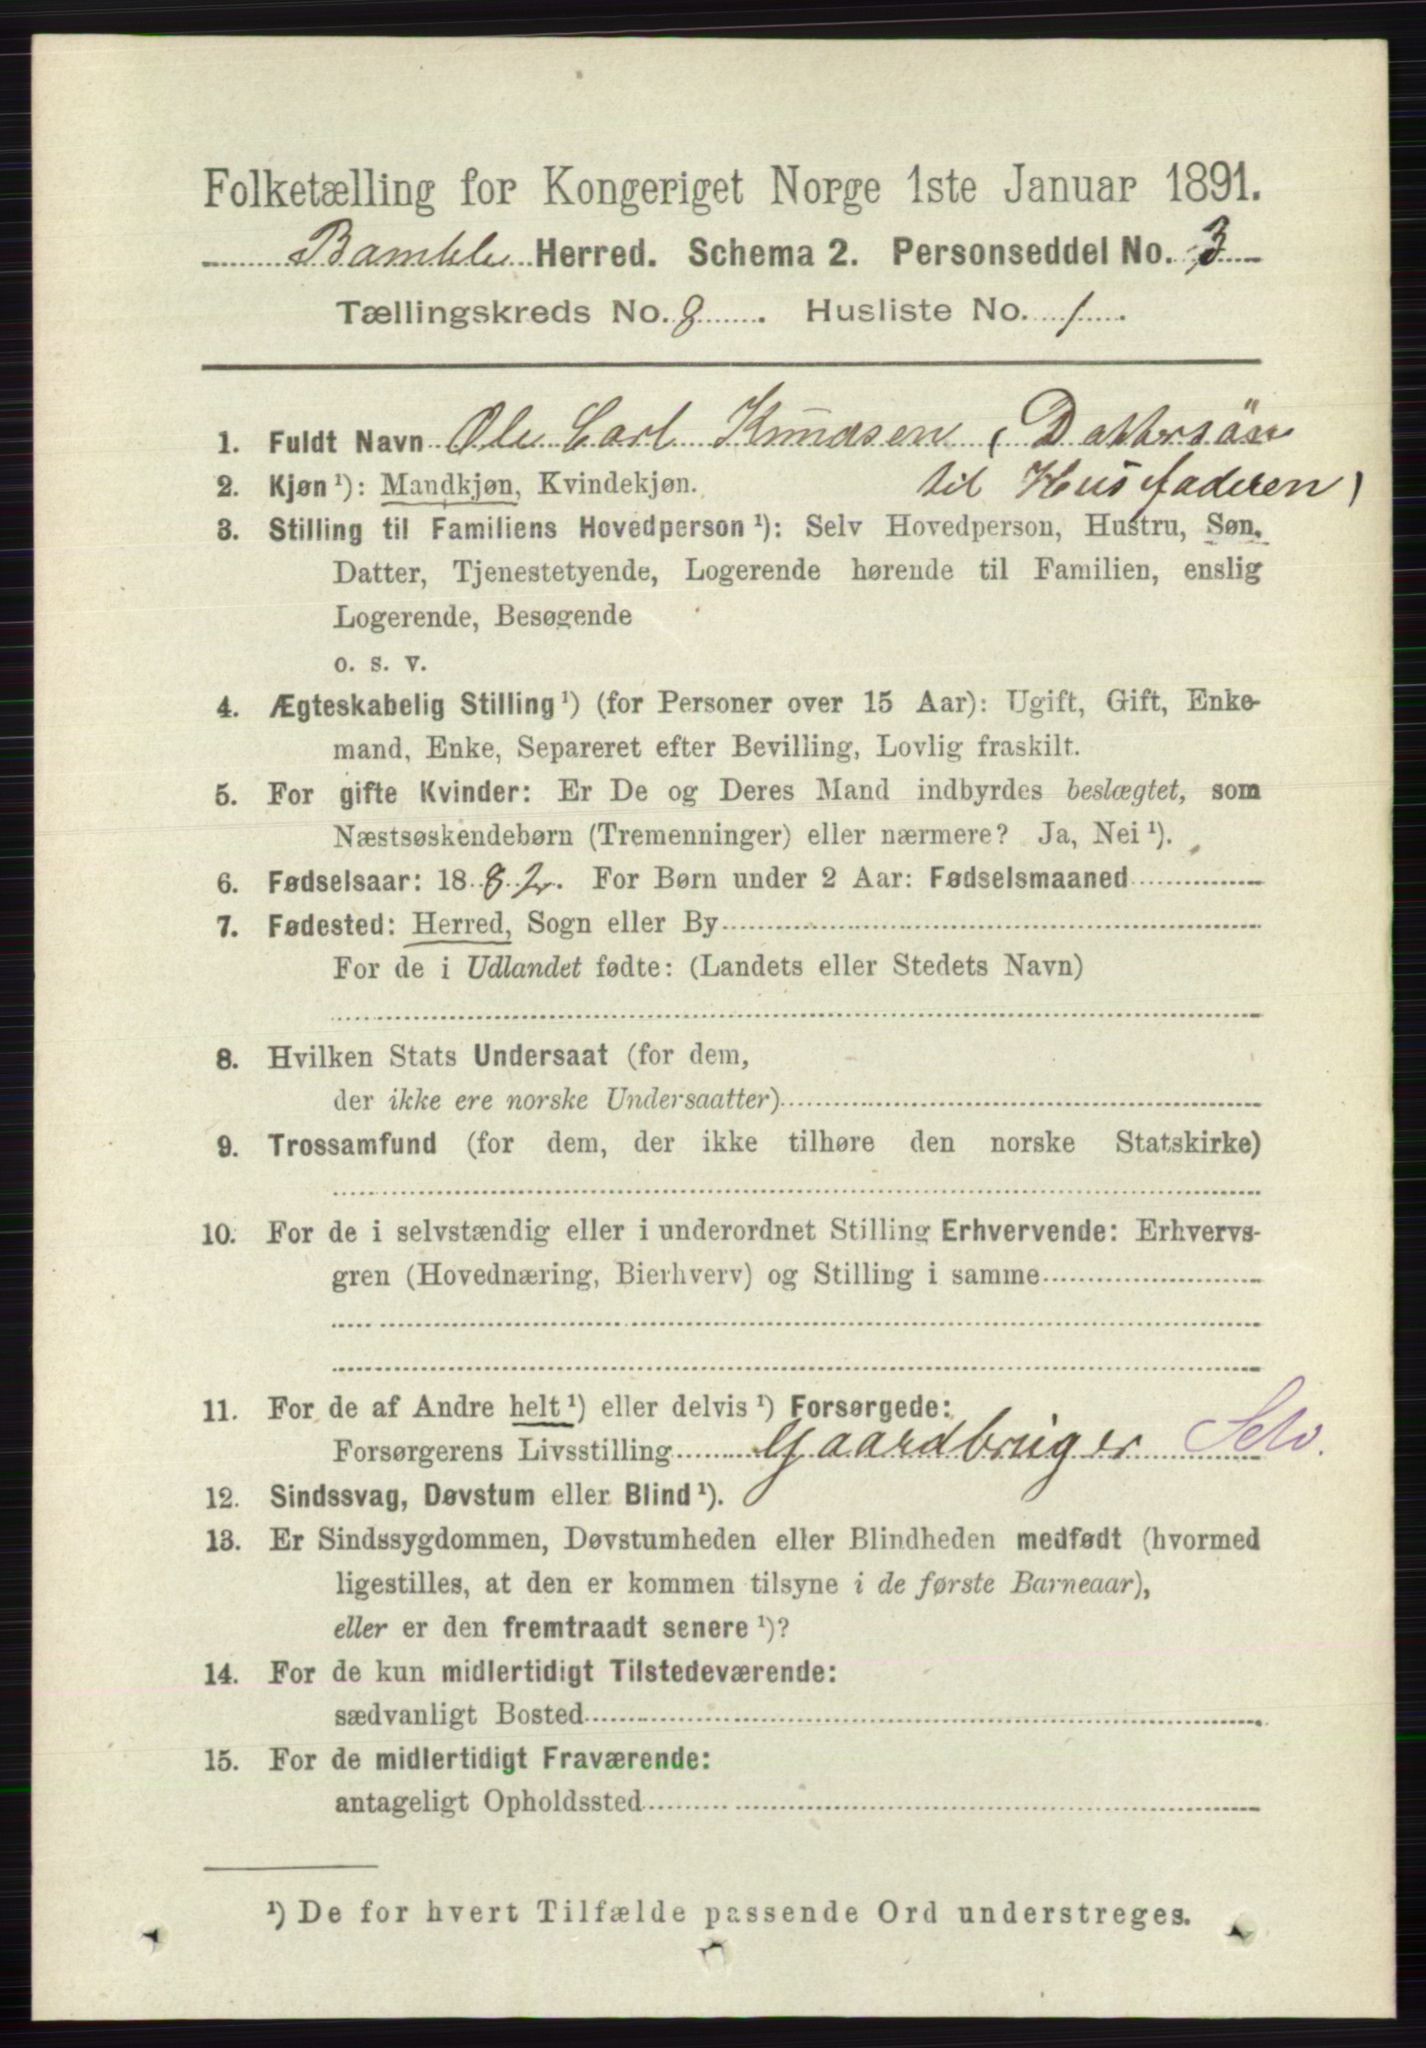 Folketælling for Kongeriget Norge 1ste Januar 1891.
Bamble Herred. Schema 2. Personseddel No. 3
Tællingskreds No. 8. Husliste No. 1.
1. Fuldt Navn Ole Carl Knudsen (Dattersön
til Husfaderen)
2. Kjøn ¹): Mandkjøn, Kvindekjøn.
3. Stilling til Familiens Hovedperson ¹): Selv Hovedperson, Hustru, Søn,
Datter, Tjenestetyende, Logerende hørende til Familien, enslig
Logerende, Besøgende
o. s. v.
4. Ægteskabelig Stilling ¹) (for Personer over 15 Aar): Ugift, Gift, Enke-
mand, Enke, Separeret efter Bevilling, Lovlig fraskilt.
5. For gifte Kvinder: Er De og Deres Mand indbyrdes beslægtet, som
Næstsøskendebørn (Tremenninger) eller nærmere? Ja, Nei ¹).
6. Fødselsaar: 1882. For Børn under 2 Aar: Fødselsmaaned
7. Fødested: Herred, Sogn eller By
For de i Udlandet fødte: (Landets eller Stedets Navn)
8. Hvilken Stats Undersaat (for dem,
der ikke ere norske Undersaatter)
9. Trossamfund (for dem, der ikke tilhøre den norske Statskirke)
10. For de i selvstændig eller i underordnet Stilling Erhvervende: Erhvervs-
gren (Hovednæring, Bierhverv) og Stilling i samme
11. For de af Andre helt ¹) eller delvis ¹) Forsørgede:
Forsørgerens Livsstilling Gaardbruger Selv.
12. Sindssvag, Døvstum eller Blind ¹).
13. Er Sindssygdommen, Døvstumheden eller Blindheden medfødt (hvormed
ligestilles, at den er kommen tilsyne i de første Barneaar),
eller er den fremtraadt senere ¹)?
14. For de kun midlertidigt Tilstedeværende:
sædvanligt Bosted
15. For de midlertidigt Fraværende:
antageligt Opholdssted
¹) De for hvert Tilfælde passende Ord understreges.